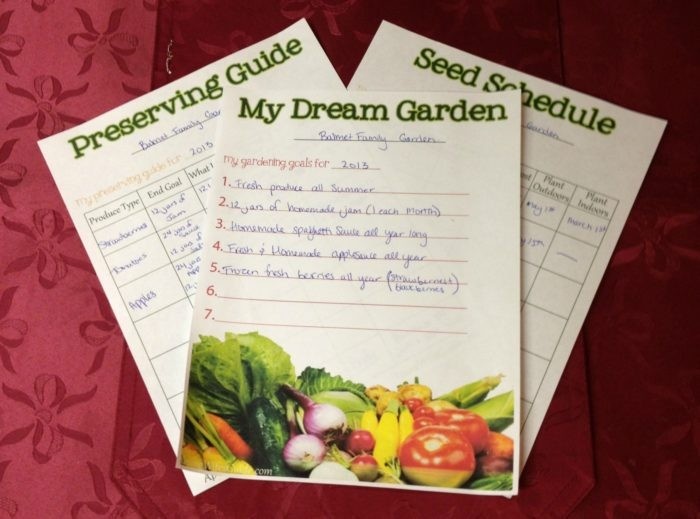 Preserving Guide
Balmet Family
my preserving guide for 2013
Produce Type End Goal What I
Strawberries 12 jars of Jam
24 jars of
12 jars of
24 jars of
Apples
Seed Schedule
Garden
Plant Outdoors Plant Indoors
May 1st March 1st
15th —
My Dream Garden
Balmet Family Garden
my gardening goals for 2013
1. Fresh produce all Summer
2. 12 jars of homemade jam (1 each month)
3. Homemade spaghetti sauce all year long
4. Fresh & Homemade applesauce all year
5. Frozen fresh berries all year (strawberries & blackberries)
6.
7.